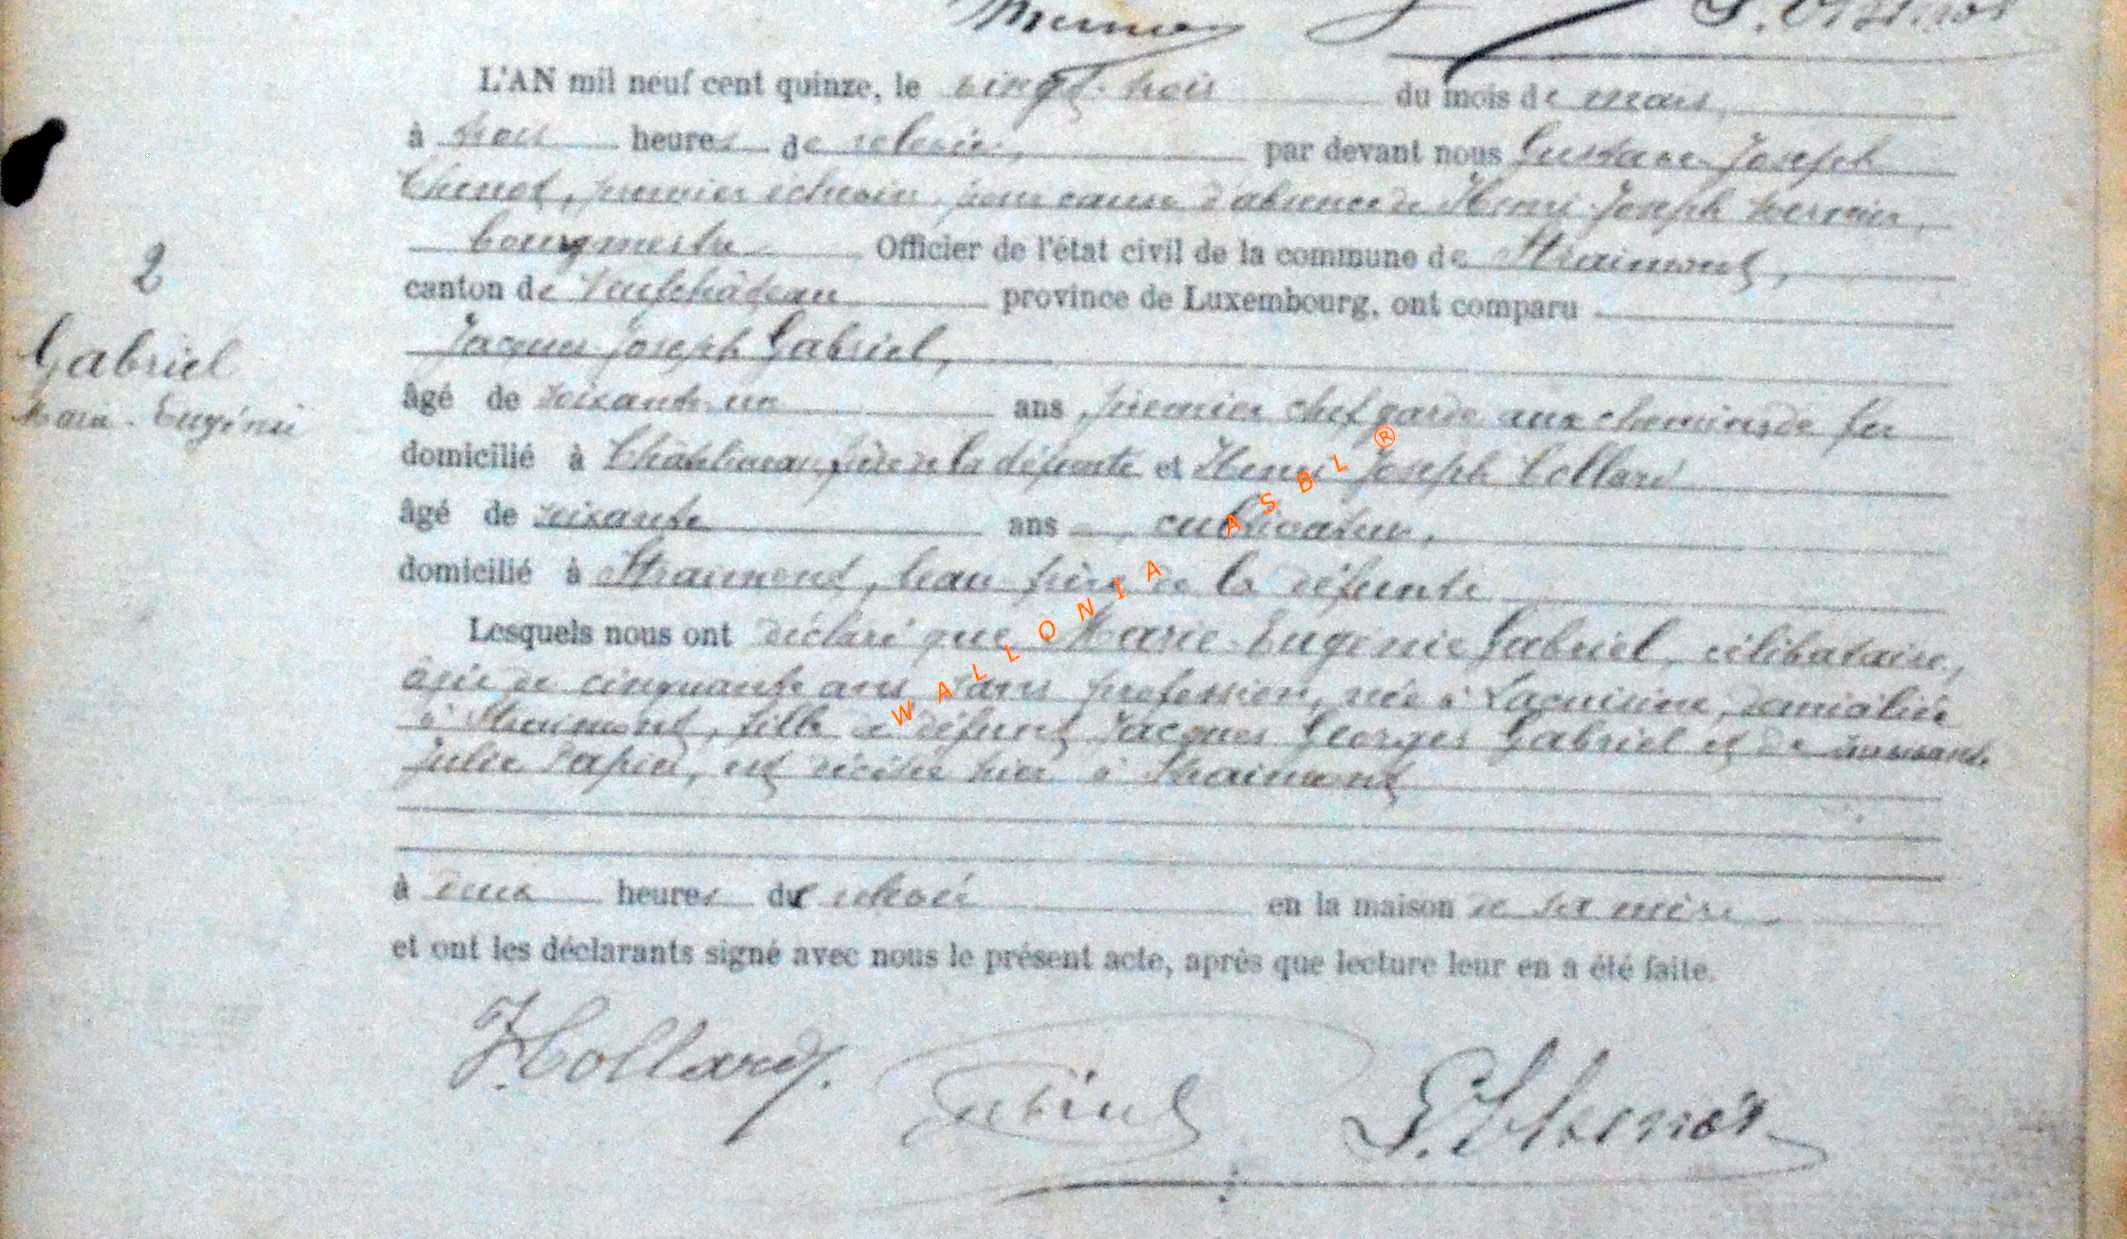 L'AN mil neuf cent quinze, le vingt-trois du mois de mars,
à trois heures de relevée, par devant nous Gustave Joseph
premier échevin, pour cause d'absence de Henri Joseph
bourgmestre Officier de l'état civil de la commune de Straimont,
canton de Neufchâteau province de Luxembourg, ont comparu
2
Gabriel
Marie-Eugénie
Jacques Joseph Gabriel,
âgé de soixante un ans, premier chef garde aux chemins de fer
domicilié à frère de la défunte et Henri Joseph Collard
âgé de soixante ans, cultivateur,
domicilié à Straimont, beau frère de la défunte
Lesquels nous ont déclaré que Marie-Eugénie Gabriel, célibataire,
âgée de cinquante ans, sans profession, née à Lacuisine, domiciliée
à Straimont, fille de défunt Jacques Georges Gabriel et de
Julie est décédée hier à Straimont
à deux heures de relevée en la maison de sa mère
et ont les déclarants signé avec nous le présent acte, après que lecture leur en a été faite.
Collard
WALLONIA ASBL ®